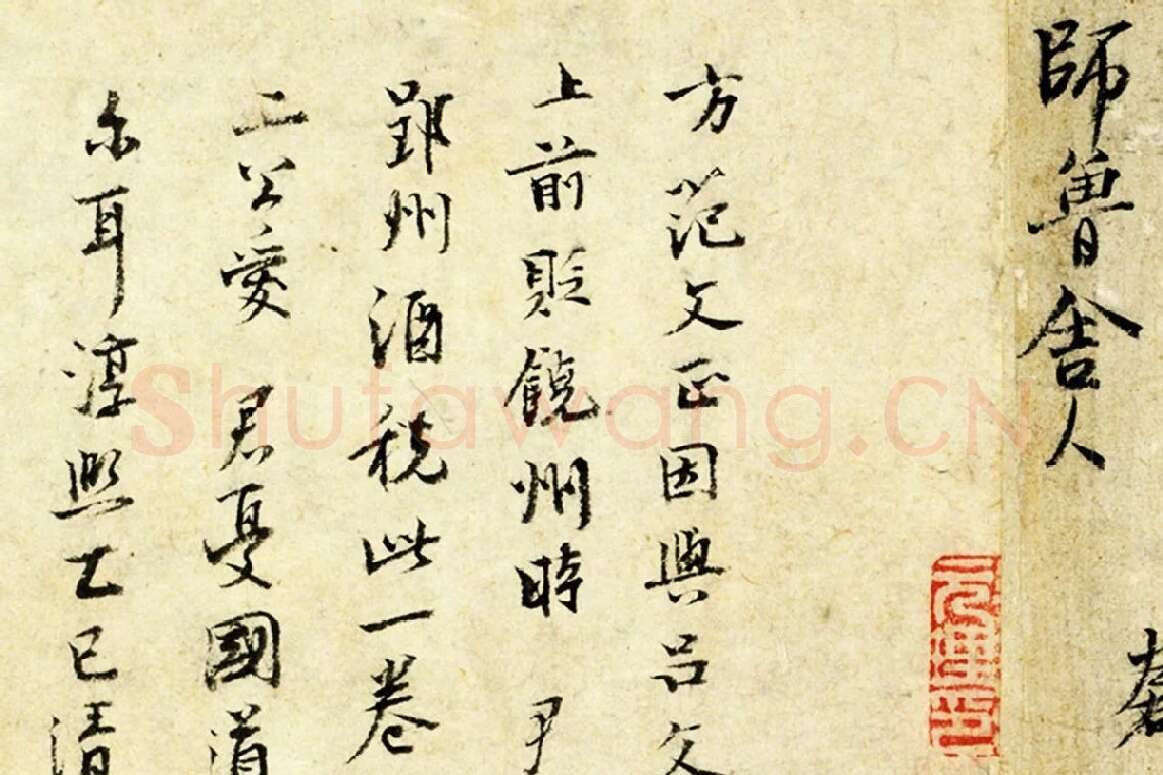 師魯舍人
方范文正因與呂文
上前貶饒州時 尹
郢州酒稅此一卷
二公愛 君憂國道
尔耳淳熙乙巳清
Shufawang.CN